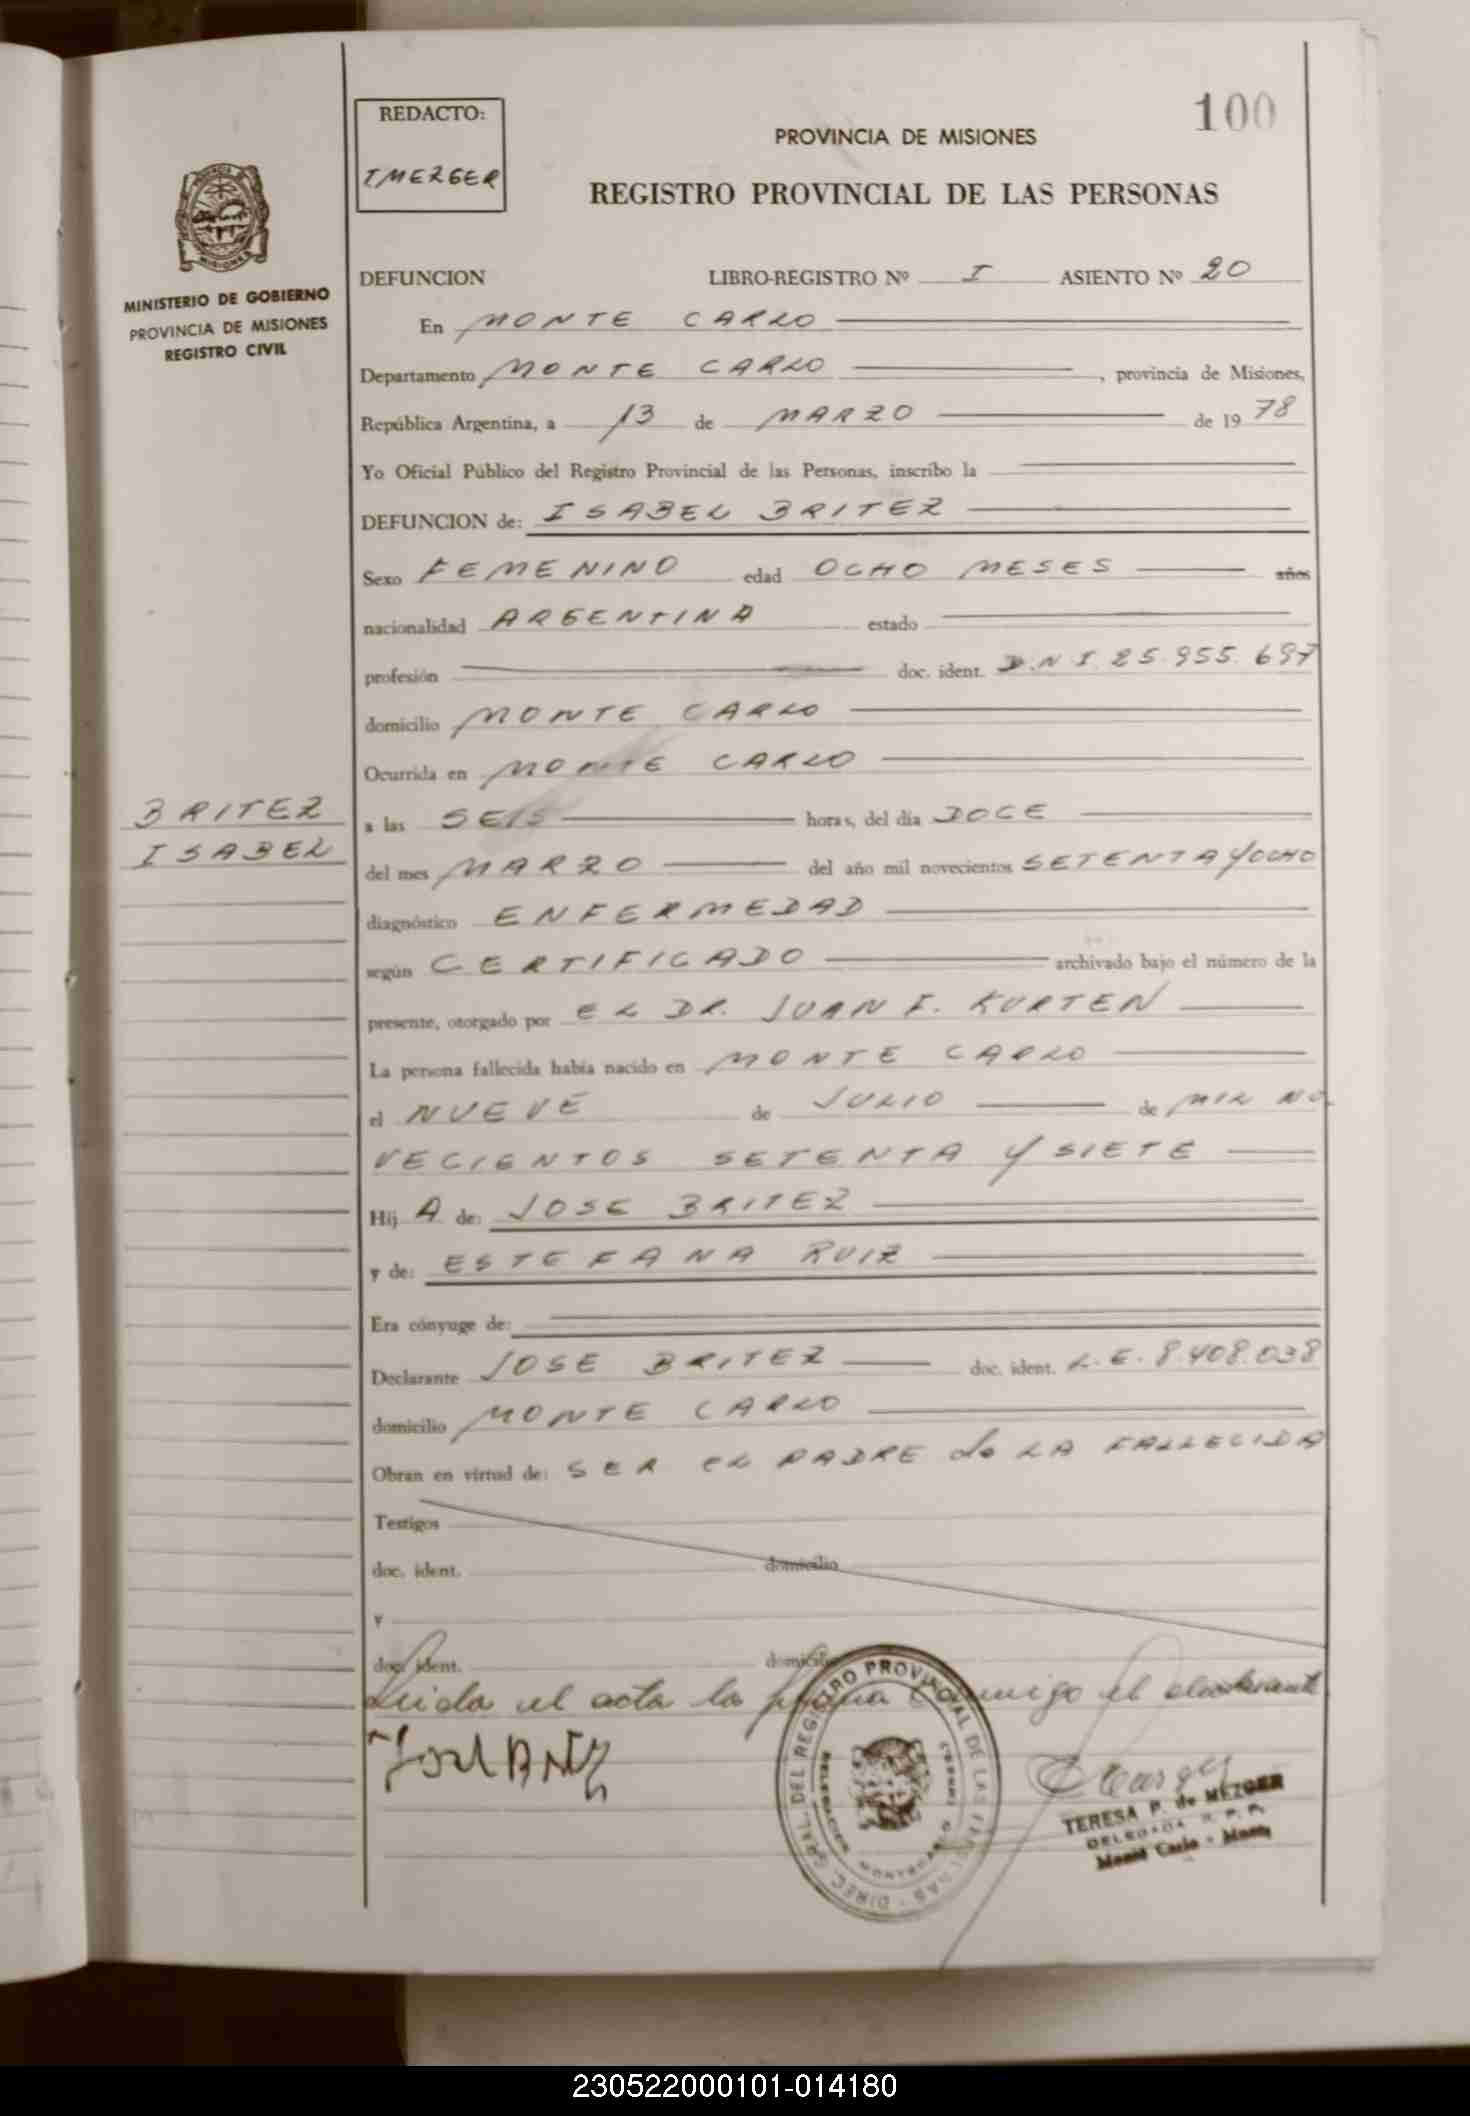 100
REDACTO:
T MEZGER
PROVINCIA DE MISIONES
REGISTRO PROVINCIAL DE LAS PERSONAS
MINISTERIO DE GOBIERNO
PROVINCIA DE MISIONES
REGISTRO CIVIL
DEFUNCION LIBRO-REGISTRO Nº I ASIENTO Nº 20
En MONTE CARLO
Departamento MONTE CARLO, provincia de Misiones,
República Argentina, a 13 de MARZO de 19 78
Yo Oficial Público del Registro Provincial de las Personas, inscribo la
DEFUNCION de: ISABEL BRITEZ
Sexo FEMENINO edad OCHO MESES años
nacionalidad ARGENTINA estado
profesión doc. ident. D.N.I. 25.955.697
domicilio MONTE CARLO
Ocurrida en MONTE CARLO
BRITEZ
ISABEL
a las SEIS horas, del día DOCE
del mes MARZO del año mil novecientos SETENTA Y OCHO
diagnóstico ENFERMEDAD
según CERTIFICADO archivado bajo el número de la
presente, otorgado por EL DR. JUAN F. KURTEN
La persona fallecida había nacido en MONTE CARLO
el NUEVE de JULIO de MIL NO
VECIENTOS SETENTA Y SIETE
Hij A de: JOSE BRITEZ
y de: ESTEFANA RUIZ
Era cónyuge de:
Declarante JOSE BRITEZ doc. ident. L.E. 8.408.038
domicilio MONTE CARLO
Obran en virtud de: SER EL PADRE de LA FALLECIDA
Testigos
doc. ident. domicilio
y
doc. ident. domicilio
Leida el acta la firma conmigo el declarante
DIREC. GRAL. DEL REGISTRO PROVINCIAL DE LAS PERSONAS
DELEGACION MONTECARLO
TERESA P. de MEZGER
DELEGADA R. P. P.
Monte Carlo - Mnes.
230522000101-014180